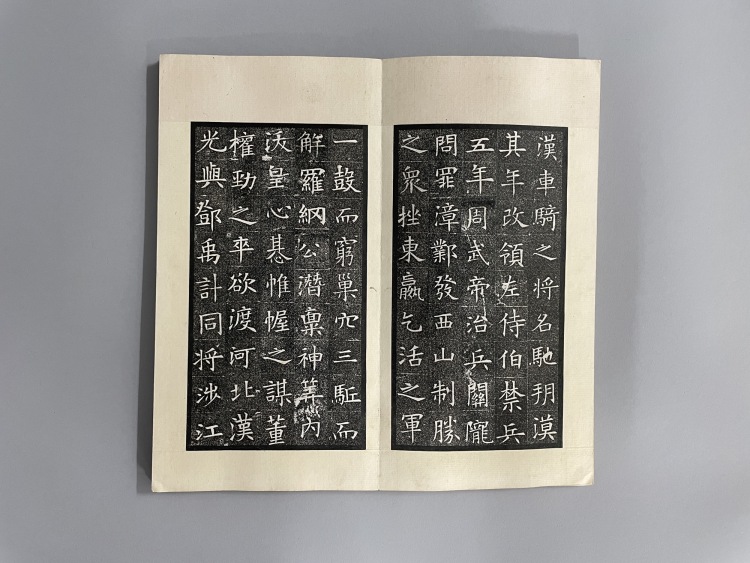 漢車騎之将名馳玥漠
其年改領左侍伯禁兵
五年周武帝治兵關隴
問罪漳鄴發西山制勝
之衆挫東嬴乞活之軍
一鼓而窮巢穴三駈而
解羅綱公潛稟神筭内
沃皇心惎惟幄之謀董
權勁之卒欲渡河北漢
光與鄧禹計同将涉江